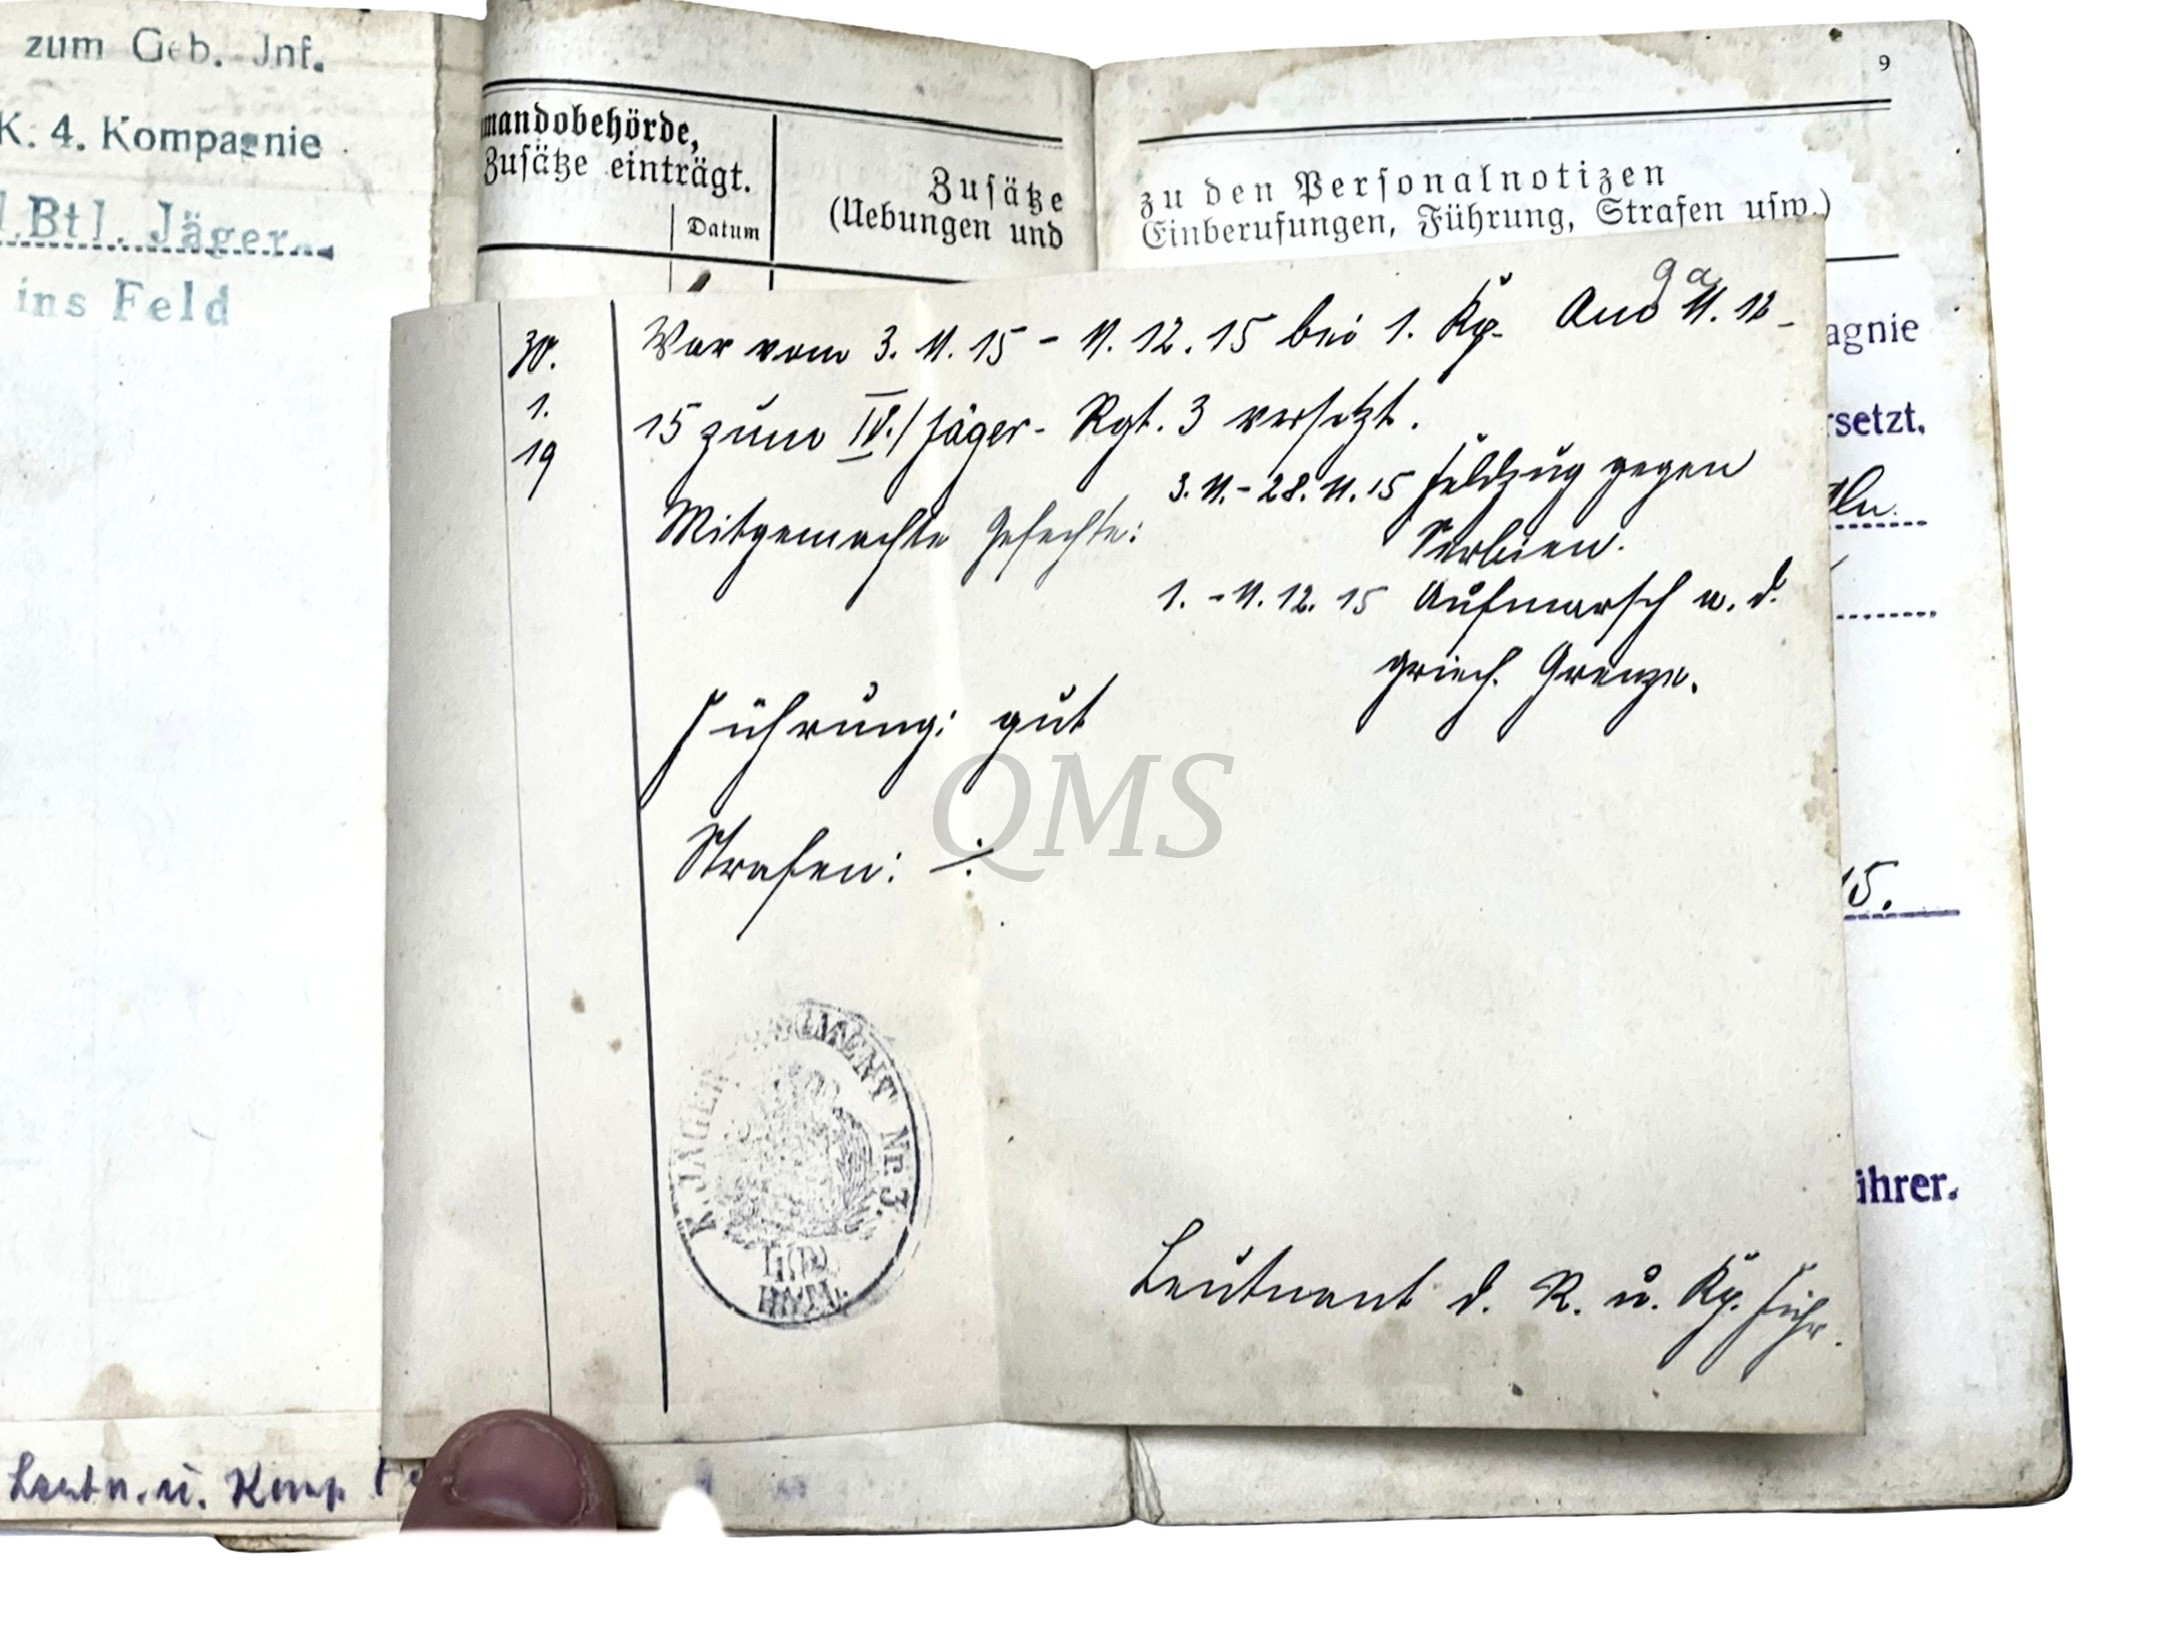 zum Geb. Jnf.
K. 4. Kompagnie
Btl. Jäger
ins Feld
Leutn. u. Komp
mandobehörde,
Zusätze einträgt.
Datum
Zusätze
(Uebungen und
9
zu den Personalnotizen
Einberufungen, Führung, Strafen usw.)
30.
1.
19
War vom 3. 11. 15 - 11. 12. 15 bei 1. Kp. Am 11. 12.
15 zum IV./Jäger-Rgt. 3 versetzt.
Mitgemachte Gefechte: 3. 11. - 28. 11. 15 Feldzug gegen
Serbien.
1. - 11. 12. 15 Aufmarsch a. d.
griech. Grenze.
Führung: gut
Strafen: ./.
QMS
K. JÄGER REGIMENT Nr. 3.
BATL.
Leutnant d. R. u. Kp. Führ.
agnie
rsetzt.
15.
ührer.